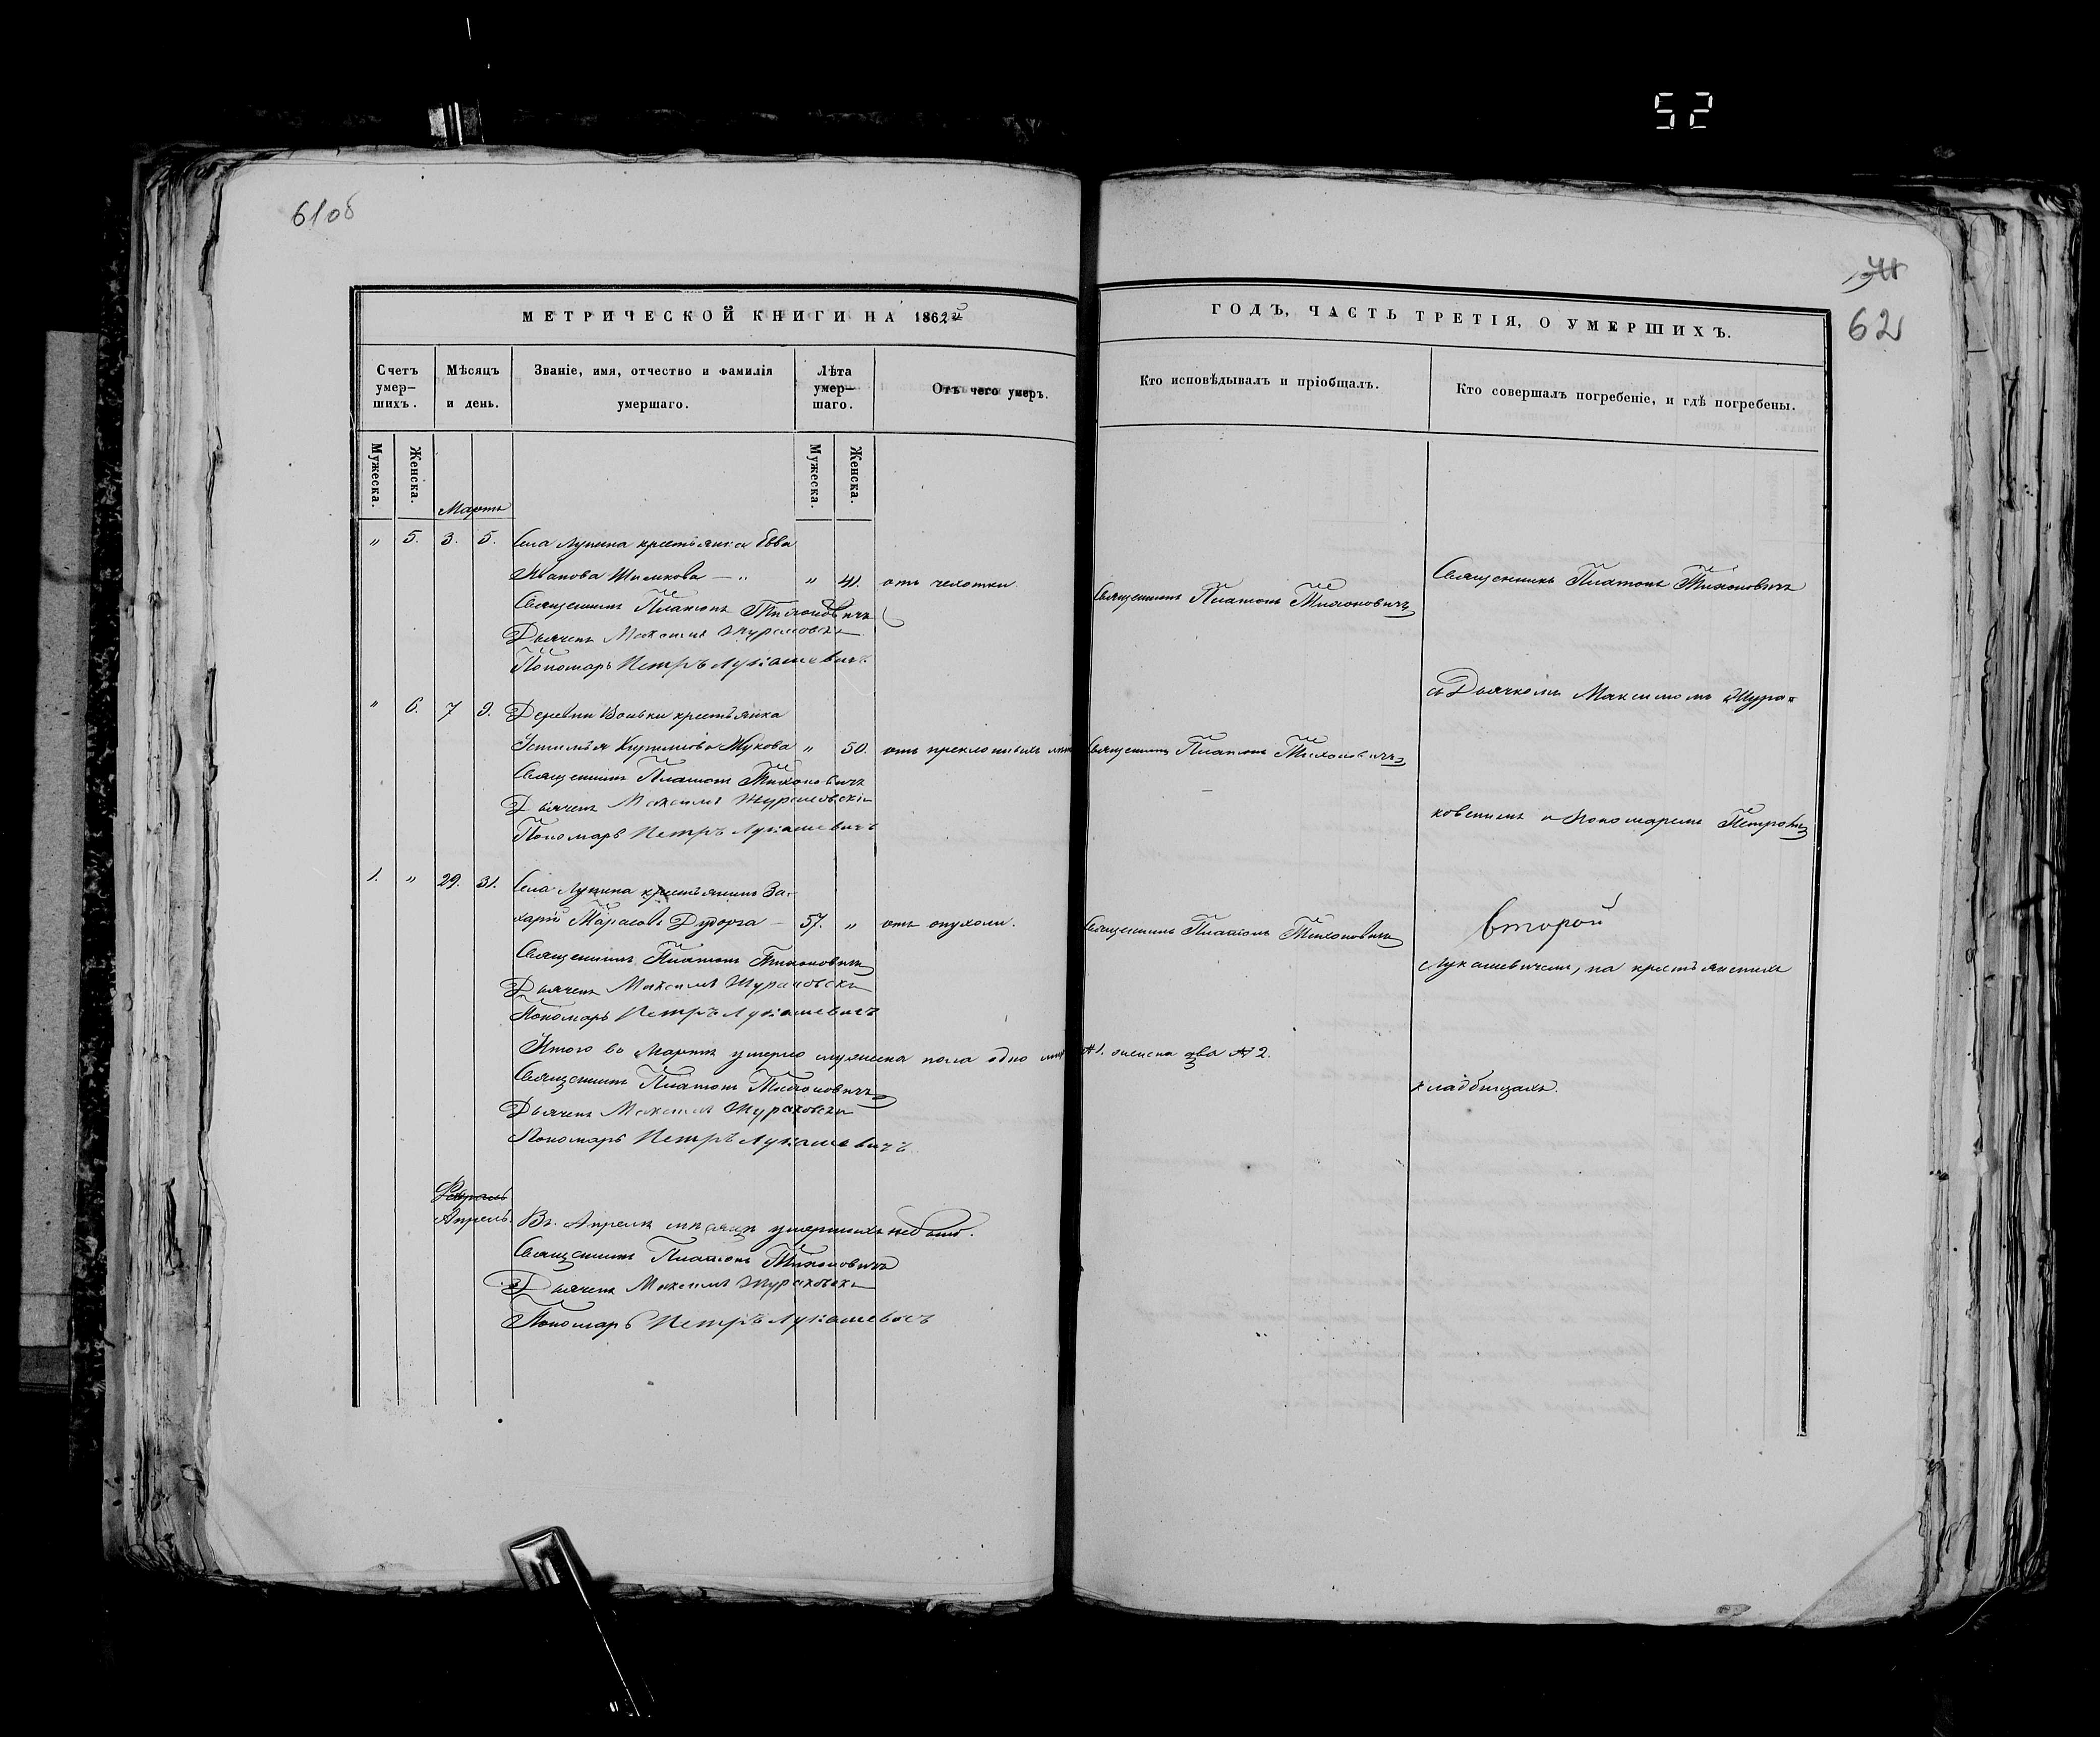 52
61об
62
МЕТРИЧЕСКОЙ КНИГИ НА 1862й
ГОДЪ, ЧАСТЬ ТРЕТІЯ, О УМЕРШИХЪ.
Счетъ умер-шихъ.
Мѣсяцъ и день.
Званіе, имя, отчество и фамилія умершаго.
Лѣта умер-шаго.
Отъ чего умеръ.
Кто исповѣдывалъ и пріобщалъ.
Кто совершалъ погребеніе, и гдѣ погребены.
Мужеска.
Женска.
Мужеска.
Женска.
Мартъ
„ 5. 3. 5. Села Лунина крестьянка Евва
Иванова „ 41. отъ чахотки. Священникъ Платонъ Тихоновичъ
Священникъ Платонъ Тихоновичъ
Дьячекъ Максимъ Жураковскій
Пономарь Петръ Лукашевичъ
„ 6. 7 9. Деревни крестьянка
Жукова „ 50. отъ преклонныхъ лѣтъ Священникъ Платонъ Тихоновичъ
Священникъ Платонъ Тихоновичъ
Дьячекъ Максимъ Жураковскій
Пономарь Петръ Лукашевичъ
1. „ 29. 31. Села Лунина крестьянинъ За-
харій Тарасовъ 57. „ отъ опухоли. Священникъ Платонъ Тихоновичъ
Священникъ Платонъ Тихоновичъ
Дьячекъ Максимъ Жураковскій
Пономарь Петръ Лукашевичъ
Итого въ Мартѣ умерло мужеска пола одно № 1. женска два № 2.
Священникъ Платонъ Тихоновичъ
Дьячекъ Максимъ Жураковскій
Пономарь Петръ Лукашевичъ
Февраль
Апрель. Въ Апрелѣ мѣсяцѣ умершихъ не было.
Священникъ Платонъ Тихоновичъ
Дьячекъ Максимъ Жураковскій
Пономарь Петръ Лукашевичъ
Священникъ Платонъ Тихоновичъ
съ Дьячкомъ Максимомъ Жура-
ковскимъ и Пономаремъ Петромъ
второй
Лукашевичемъ, на крестьянскихъ
кладбищахъ.